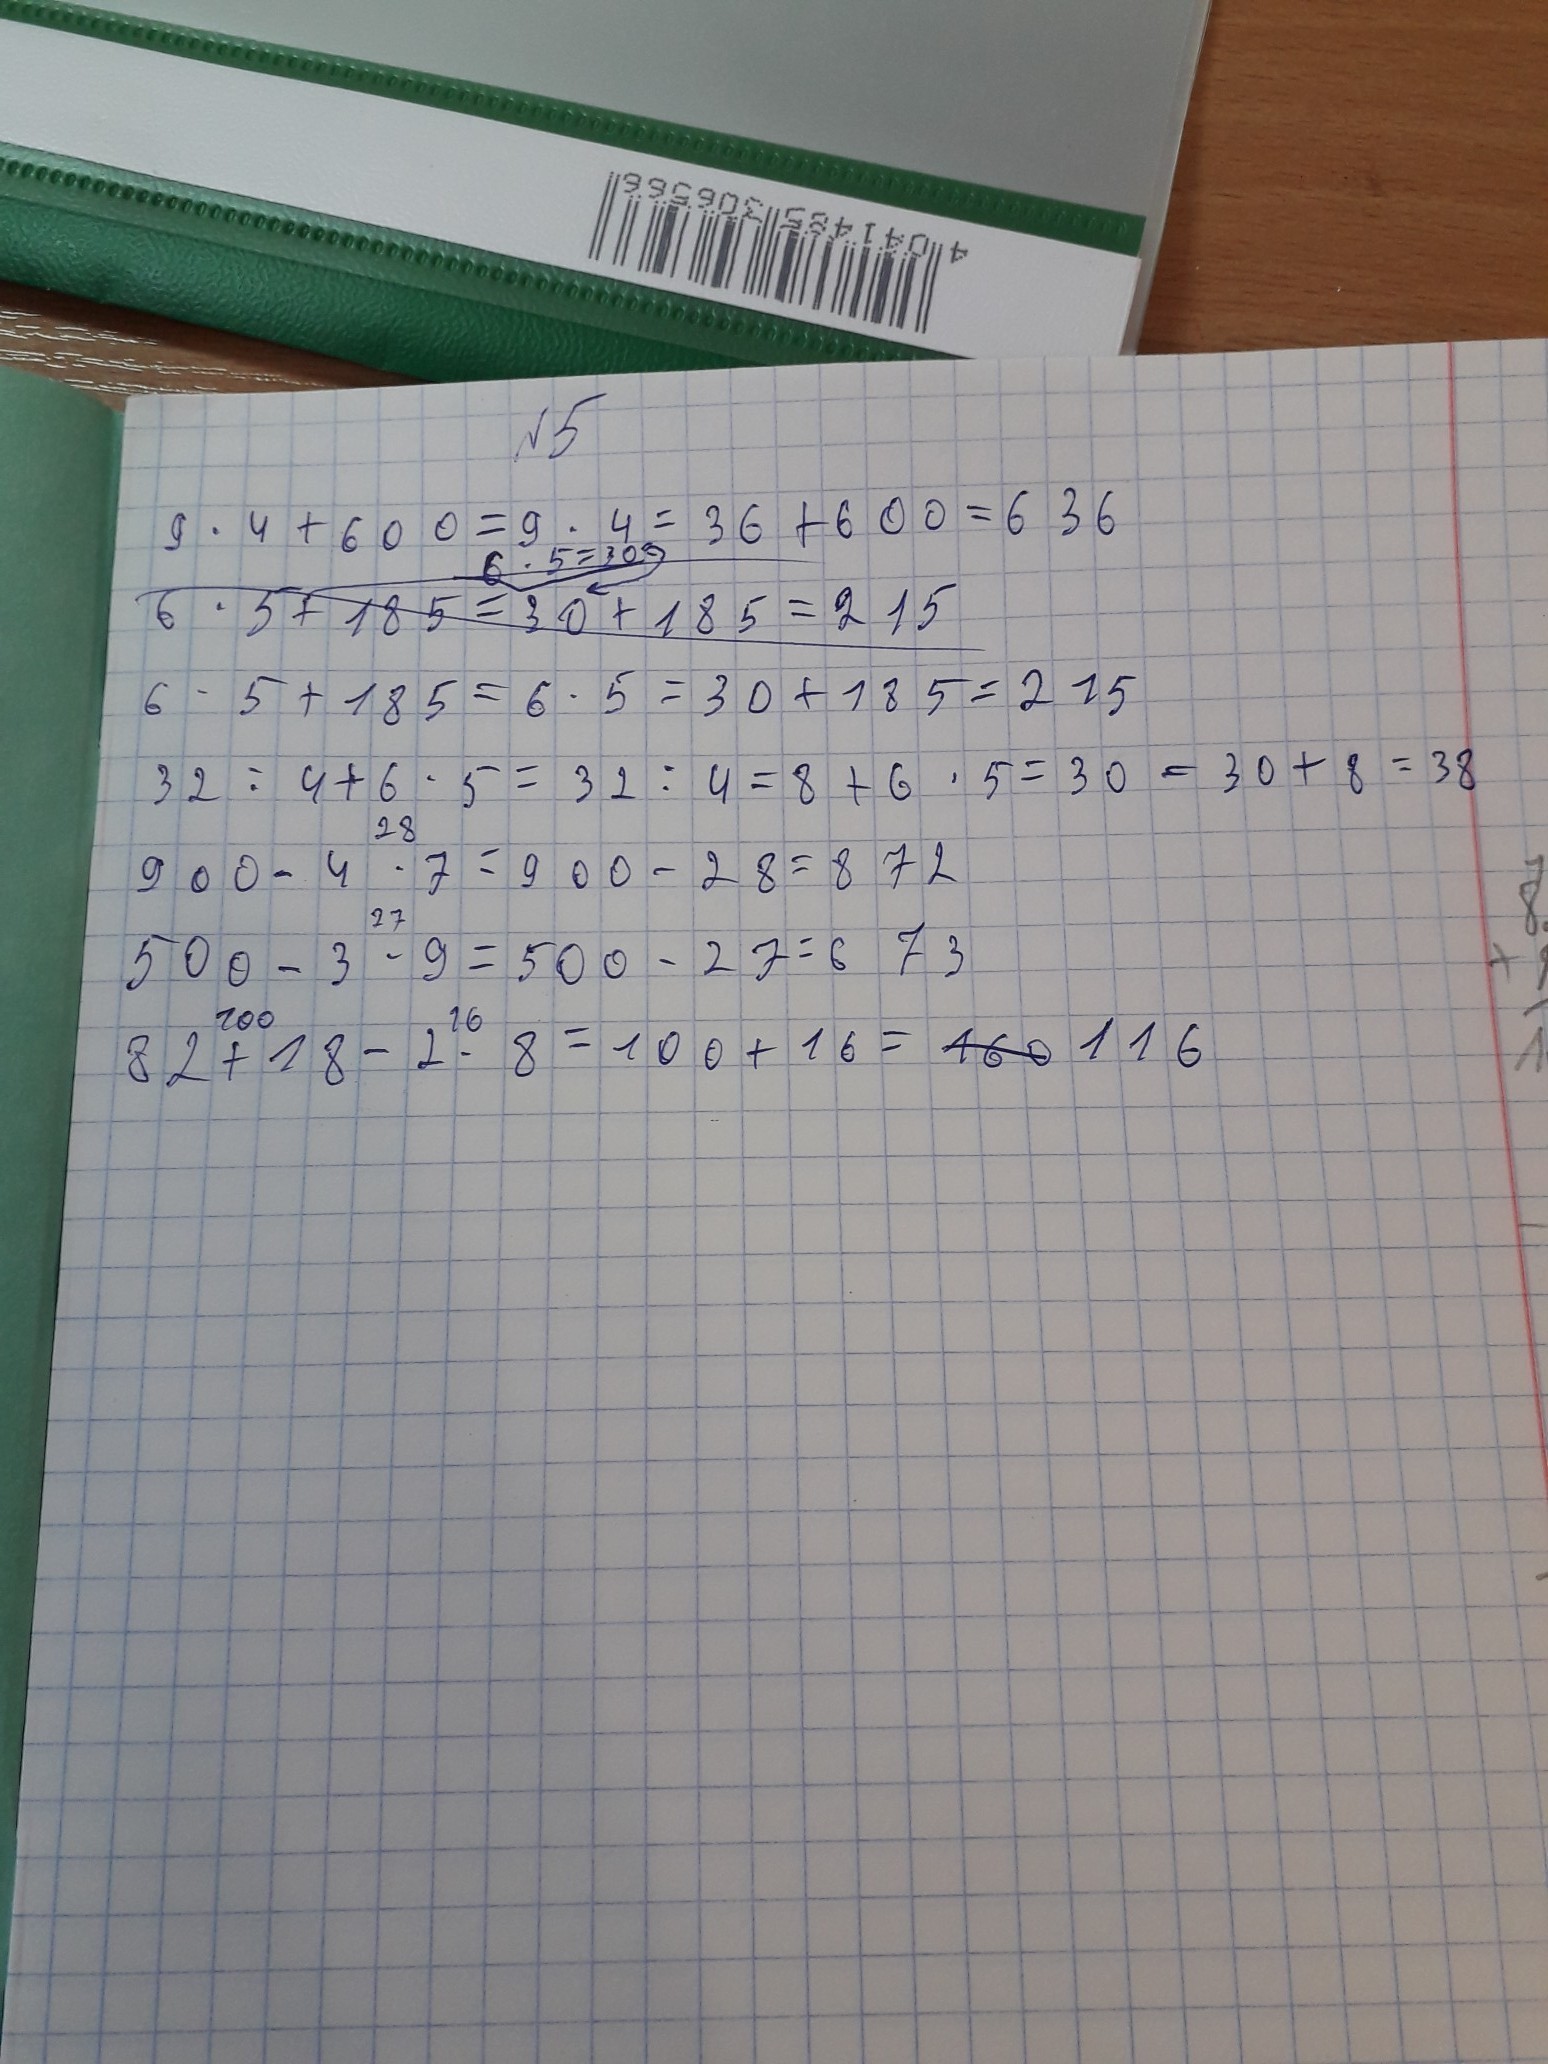 4 041485 306566
№5
9 · 4 + 600 = 9 · 4 = 36 + 600 = 636
6 · 5 = 30
6 · 5 + 185 = 30 + 185 = 215
6 · 5 + 185 = 6 · 5 = 30 + 185 = 215
32 : 4 + 6 · 5 = 32 : 4 = 8 + 6 · 5 = 30 = 30 + 8 = 38
28
900 - 4 · 7 = 900 - 28 = 872
27
500 - 3 · 9 = 500 - 27 = 673
100 16
82 + 18 - 2 · 8 = 100 + 16 = 160 116